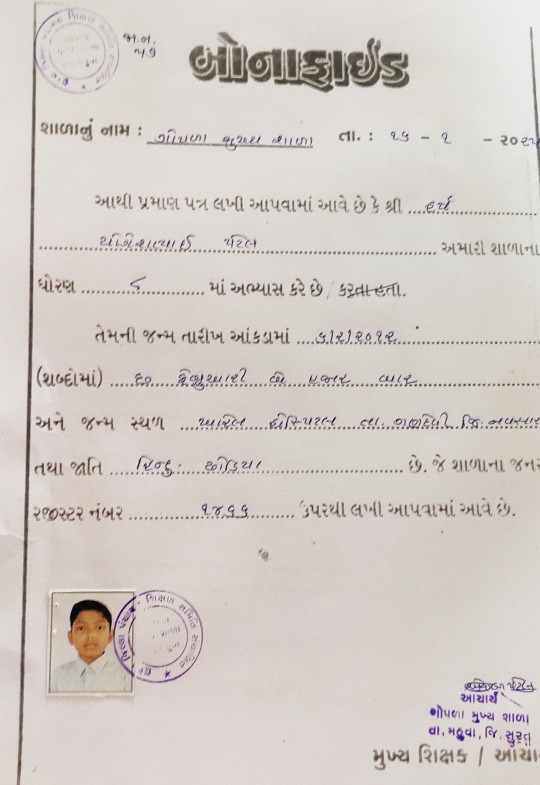 જા.ન.
બોનાફાઈડ
શાળાનું નામ : ગોપળા મુખ્ય શાળા તા. : - ૧ - ૨૦૨૫
આથી પ્રમાણ પત્ર લખી આપવામાં આવે છે કે શ્રી હર્ષ
યોગેશભાઈ પટેલ અમારી શાળાના
ધોરણ ૮ માં અભ્યાસ કરે છે / કરતા હતા.
તેમની જન્મ તારીખ આંકડામાં
(શબ્દોમાં) ફેબ્રુઆરી બે હજાર બાર
અને જન્મ સ્થળ હોસ્પિટલ તા. ગણદેવી જિ. નવસાર
તથા જાતિ હિન્દુ. ધોડિયા છે. જે શાળાના જનર
રજીસ્ટર નંબર ૧૪૬૬ ઉપરથી લખી આપવામાં આવે છે.
આચાર્ય
ગોપળા મુખ્ય શાળા
તા. મહુવા, જિ. સુરત
મુખ્ય શિક્ષક / આચા